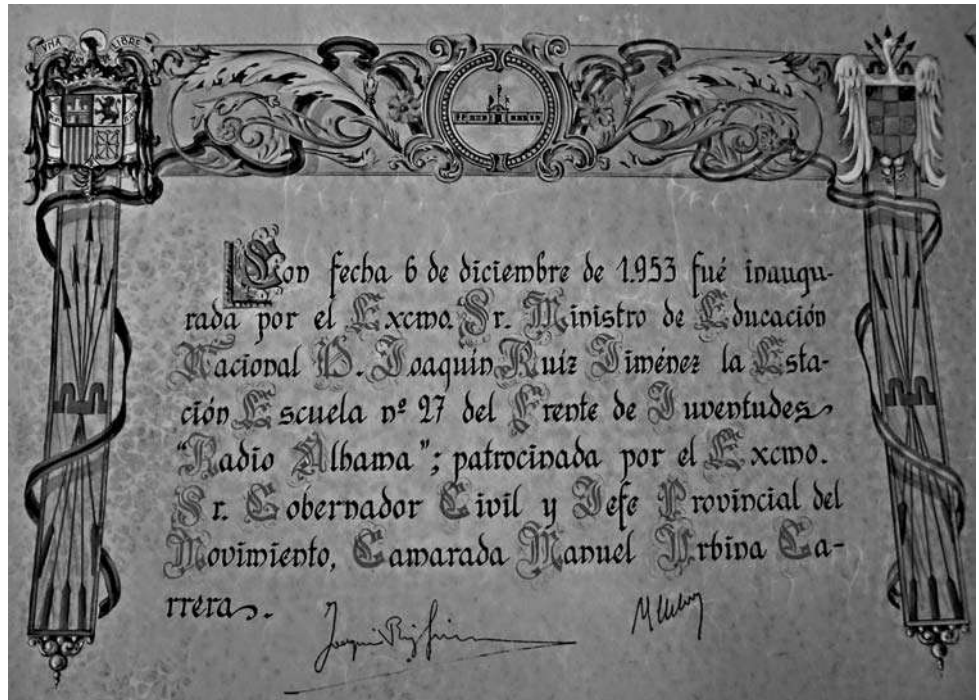 UNA LIBRE
Con fecha 6 de diciembre de 1.953 fué inaugu-
rada por el Excmo. Sr. Ministro de Educación
Nacional D. Joaquín Ruiz Jiménez la Esta-
ción Escuela nº 27 del Frente de Juventudes
"Radio Alhama"; patrocinada por el Excmo.
Sr. Gobernador Civil y Jefe Provincial del
Movimiento, Camarada Manuel Urbina Ca-
rrera.